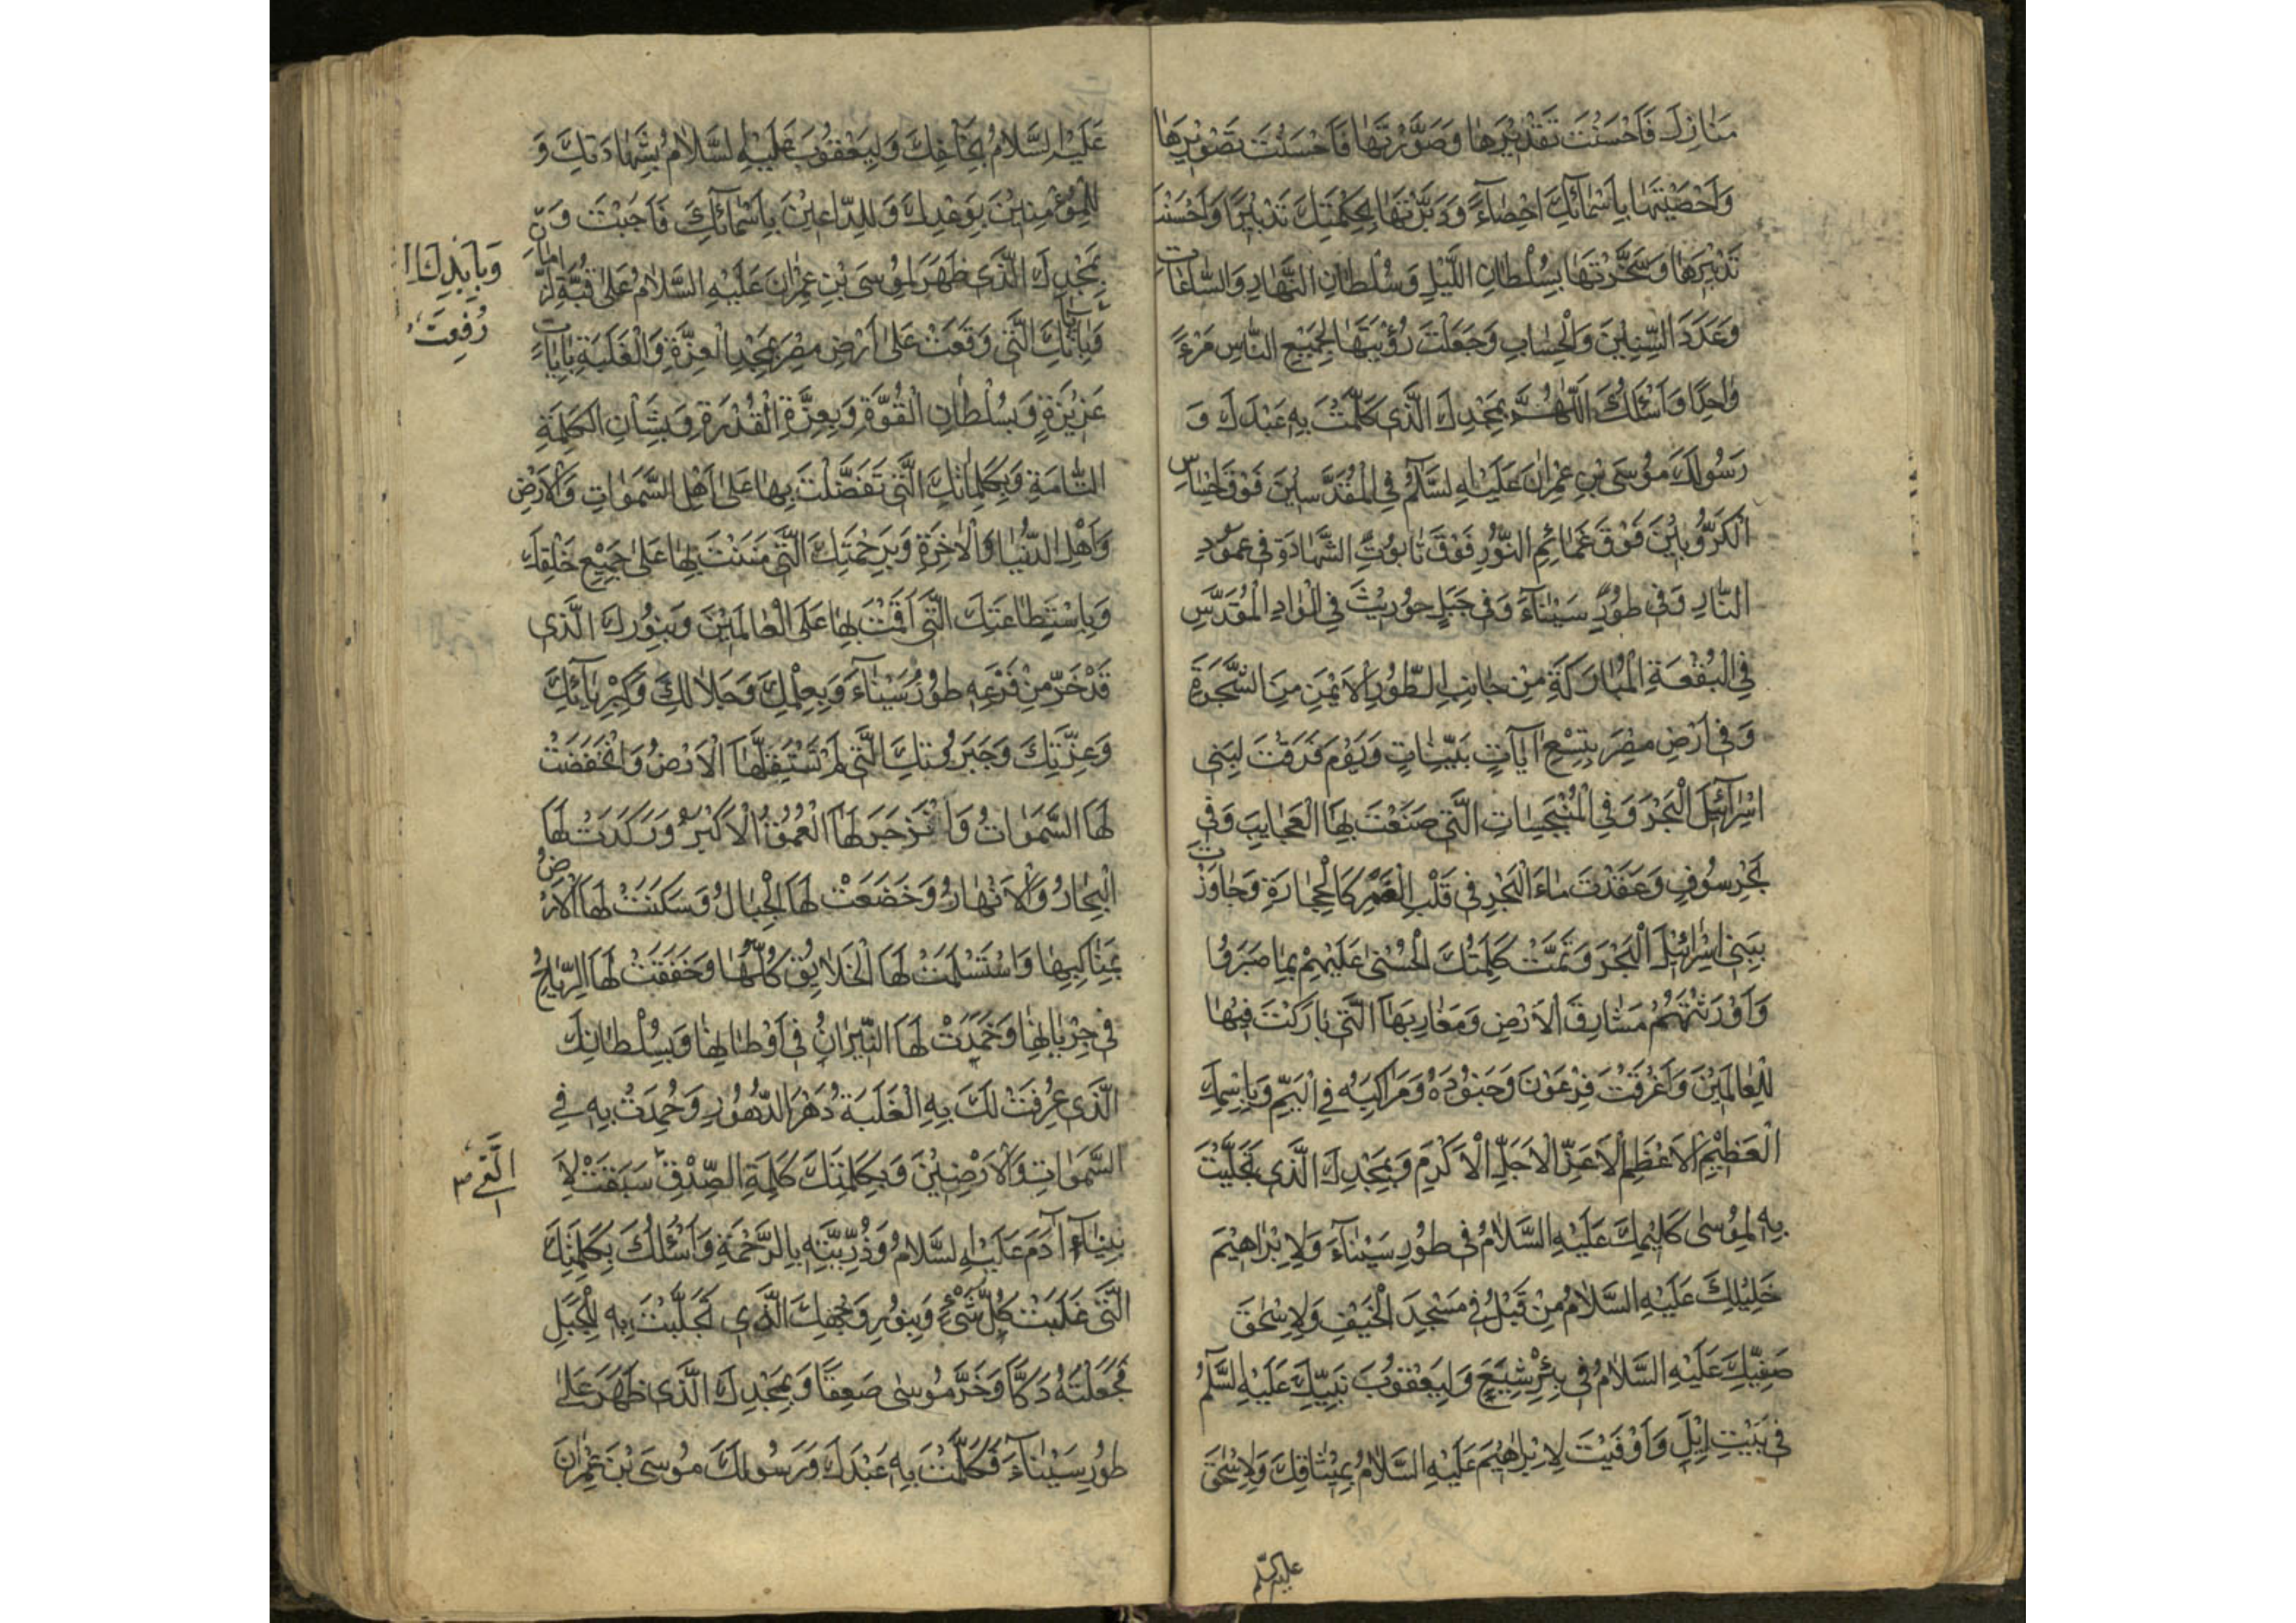 مَنَازِلَ فَاَحْسَنْتَ تَقْدِيْرَهَا وَصَوَّرْتَهَا فَاَحْسَنْتَ تَصْوِيْرَهَا
وَاَحْصَيْتَهَا بِاَسْمَآئِكَ اِحْصَآءً وَدَبَّرْتَهَا بِحِكْمَتِكَ تَدْبِيْرًا وَاَحْسَنْتَ
تَدْبِيْرَهَا وَسَخَّرْتَهَا بِسُلْطَانِ اللَّيْلِ وَسُلْطَانِ النَّهَارِ وَالسَّاعَاتِ
وَعَدَدَ السِّنِيْنَ وَالْحِسَابِ وَجَعَلْتَ رُؤْيَتَهَا لِجَمِيْعِ النَّاسِ مَرْءً
وَاحِدًا وَاَسْئَلُكَ اَللّٰهُمَّ بِمَجْدِكَ الَّذِى كَلَّمْتَ بِهِ عَبْدَكَ وَ
رَسُولَكَ مُوسَى بْنِ عِمْرَانَ عَلَيْهِ السَّلَمُ فِى الْمُقَدَّسِيْنَ فَوْقَ اِحْسَاسِ
الْكَرُّوبِيْنَ فَوْقَ غَمَائِمِ النُّوْرِ فَوْقَ تَابُوْتِ الشَّهَادَةِ فِى عَمُوْدِ
النَّارِ وَفِى طُوْرِ سَيْنَآءَ وَفِى جَبَلِ حُوْرِيْثَ فِى الْوَادِ الْمُقَدَّسِ
فِى الْبُقْعَةِ الْمُبَارَكَةِ مِنْ جَانِبِ الطُّوْرِ الْاَيْمَنِ مِنَ الشَّجَرَةِ
وَفِى اَرْضِ مِصْرَ بِتِسْعِ اٰيَاتٍ بَيِّنَاتٍ وَيَوْمَ فَرَقْتَ لِبَنِى
اِسْرَآئِيْلَ الْبَحْرَ وَفِى الْمُنْبَجِسَاتِ الَّتِى صَنَعْتَ بِهَا الْعَجَايِبَ وَفِى
بَحْرِ سُوْفٍ وَعَقَدْتَ مَاءَ الْبَحْرِ فِى قَلْبِ الْغَمْرِ كَالْحِجَارَةِ وَجَاوَزْتَ
بِبَنِى اِسْرَائِيْلَ الْبَحْرَ وَتَمَّتْ كَلِمَتُكَ الْحُسْنٰى عَلَيْهِمْ بِمَا صَبَرُوْا
وَاَوْرَثْتَهُمْ مَشَارِقَ الْاَرْضِ وَمَغَارِبَهَا الَّتِى بَارَكْتَ فِيْهَا
لِلْعَالَمِيْنَ وَاَغْرَقْتَ فِرْعَوْنَ وَجُنُوْدَهُ وَمَرَاكِبَهُ فِى الْيَمِّ وَبِاِسْمِكَ
الْعَظِيْمِ الْاَعْظَمِ الْاَعَزِّ الْاَجَلِّ الْاَكْرَمِ وَبِمَجْدِكَ الَّذِى تَجَلَّيْتَ
بِهِ لِمُوْسٰى كَلِيْمِكَ عَلَيْهِ السَّلَامُ فِى طُوْرِ سَيْنَآءَ وَلِاِبْرَاهِيْمَ
خَلِيْلِكَ عَلَيْهِ السَّلَامُ مِنْ قَبْلُ فِى مَسْجِدِ الْخَيْفِ وَلِاِسْحٰقَ
صَفِيِّكَ عَلَيْهِ السَّلَامُ فِى بِئْرِ شِيَعٍ وَلِيَعْقُوْبَ نَبِيِّكَ عَلَيْهِ السَّلَمُ
فِى بَيْتِ اِيْلٍ وَاَوْفَيْتَ لِاِبْرَاهِيْمَ عَلَيْهِ السَّلَامُ بِمِيْثَاقِكَ وَلِاِسْحٰقَ
عَلَيْهِ السَّلَامُ بِحَلْفِكَ وَلِيَعْقُوْبَ عَلَيْهِ السَّلَامُ بِشَهَادَتِكَ وَ
لِلْمُؤْمِنِيْنَ بِوَعْدِكَ وَلِلدَّاعِيْنَ بِاَسْمَآئِكَ فَاَجَبْتَ وَ
بِمَجْدِكَ الَّذِى ظَهَرَ لِمُوْسَى بْنِ عِمْرَانَ عَلَيْهِ السَّلَامُ عَلٰى قُبَّةِ
وَبِاٰيَاتِكَ الَّتِى وَقَعَتْ عَلٰى اَرْضِ مِصْرَ بِمَجْدِ الْعِزَّةِ وَالْغَلَبَةِ بِاٰيَاتٍ
وَبِاَيْدِكَ
رُفِعَتْ
عَزِيْزَةٍ وَبِسُلْطَانِ الْقُوَّةِ وَبِعِزَّةِ الْقُدْرَةِ وَبِشَأْنِ الْكَلِمَةِ
التَّامَّةِ وَبِكَلِمَاتِكَ الَّتِى تَفَضَّلْتَ بِهَا عَلٰى اَهْلِ السَّمٰوَاتِ وَالْاَرْضِ
وَاَهْلِ الدُّنْيَا وَالْاٰخِرَةِ وَبِرَحْمَتِكَ الَّتِى مَنَنْتَ بِهَا عَلٰى جَمِيْعِ خَلْقِكَ
وَبِاِسْتِطَاعَتِكَ الَّتِى اَقَمْتَ بِهَا عَلَى الْعَالَمِيْنَ وَبِنُوْرِكَ الَّذِى
قَدْ خَرَّ مِنْ فَزَعِهِ طُوْرُ سَيْنَآءَ وَبِعِلْمِكَ وَجَلَالِكَ وَكِبْرِيَآئِكَ
وَعِزَّتِكَ وَجَبَرُوْتِكَ الَّتِى لَمْ تَسْتَقِلَّهَا الْاَرْضُ وَانْخَفَضَتْ
لَهَا السَّمٰوَاتُ وَانْزَجَرَ لَهَا الْعُمْقُ الْاَكْبَرُ وَرَكَدَتْ لَهَا
الْبِحَارُ وَالْاَنْهَارُ وَخَضَعَتْ لَهَا الْجِبَالُ وَسَكَنَتْ لَهَا الْاَرْضُ
بِمَنَاكِبِهَا وَاسْتَسْلَمَتْ لَهَا الْخَلَايِقُ كُلُّهَا وَخَفَقَتْ لَهَا الرِّيَاحُ
فِى جِرْيَانِهَا وَخَمَدَتْ لَهَا النِّيْرَانُ فِى اَوْطَانِهَا وَبِسُلْطَانِكَ
الَّذِى عُرِفَتْ لَكَ بِهِ الْغَلَبَةُ دَهْرَ الدُّهُوْرِ وَحُمِدْتَ بِهِ فِى
السَّمٰوَاتِ وَالْاَرْضِيْنَ وَبِكَلِمَتِكَ كَلِمَةِ الصِّدْقِ سَبَقَتْ لِاَ
الَّتِى
بِيْنَآءِ اٰدَمَ عَلَيْهِ السَّلَامُ وَذُرِّيَّتِهِ بِالرَّحْمَةِ وَاَسْئَلُكَ بِكَلِمَتِكَ
الَّتِى غَلَبَتْ كُلَّ شَىْءٍ وَبِنُوْرِ وَجْهِكَ الَّذِى تَجَلَّيْتَ بِهِ لِلْجَبَلِ
فَجَعَلْتَهُ دَكًّا وَخَرَّ مُوْسٰى صَعِقًا وَبِمَجْدِكَ الَّذِى ظَهَرَ عَلٰى
طُوْرِ سَيْنَآءَ فَكَلَّمْتَ بِهِ عَبْدَكَ وَرَسُوْلَكَ مُوْسَى بْنَ عِمْرَانَ